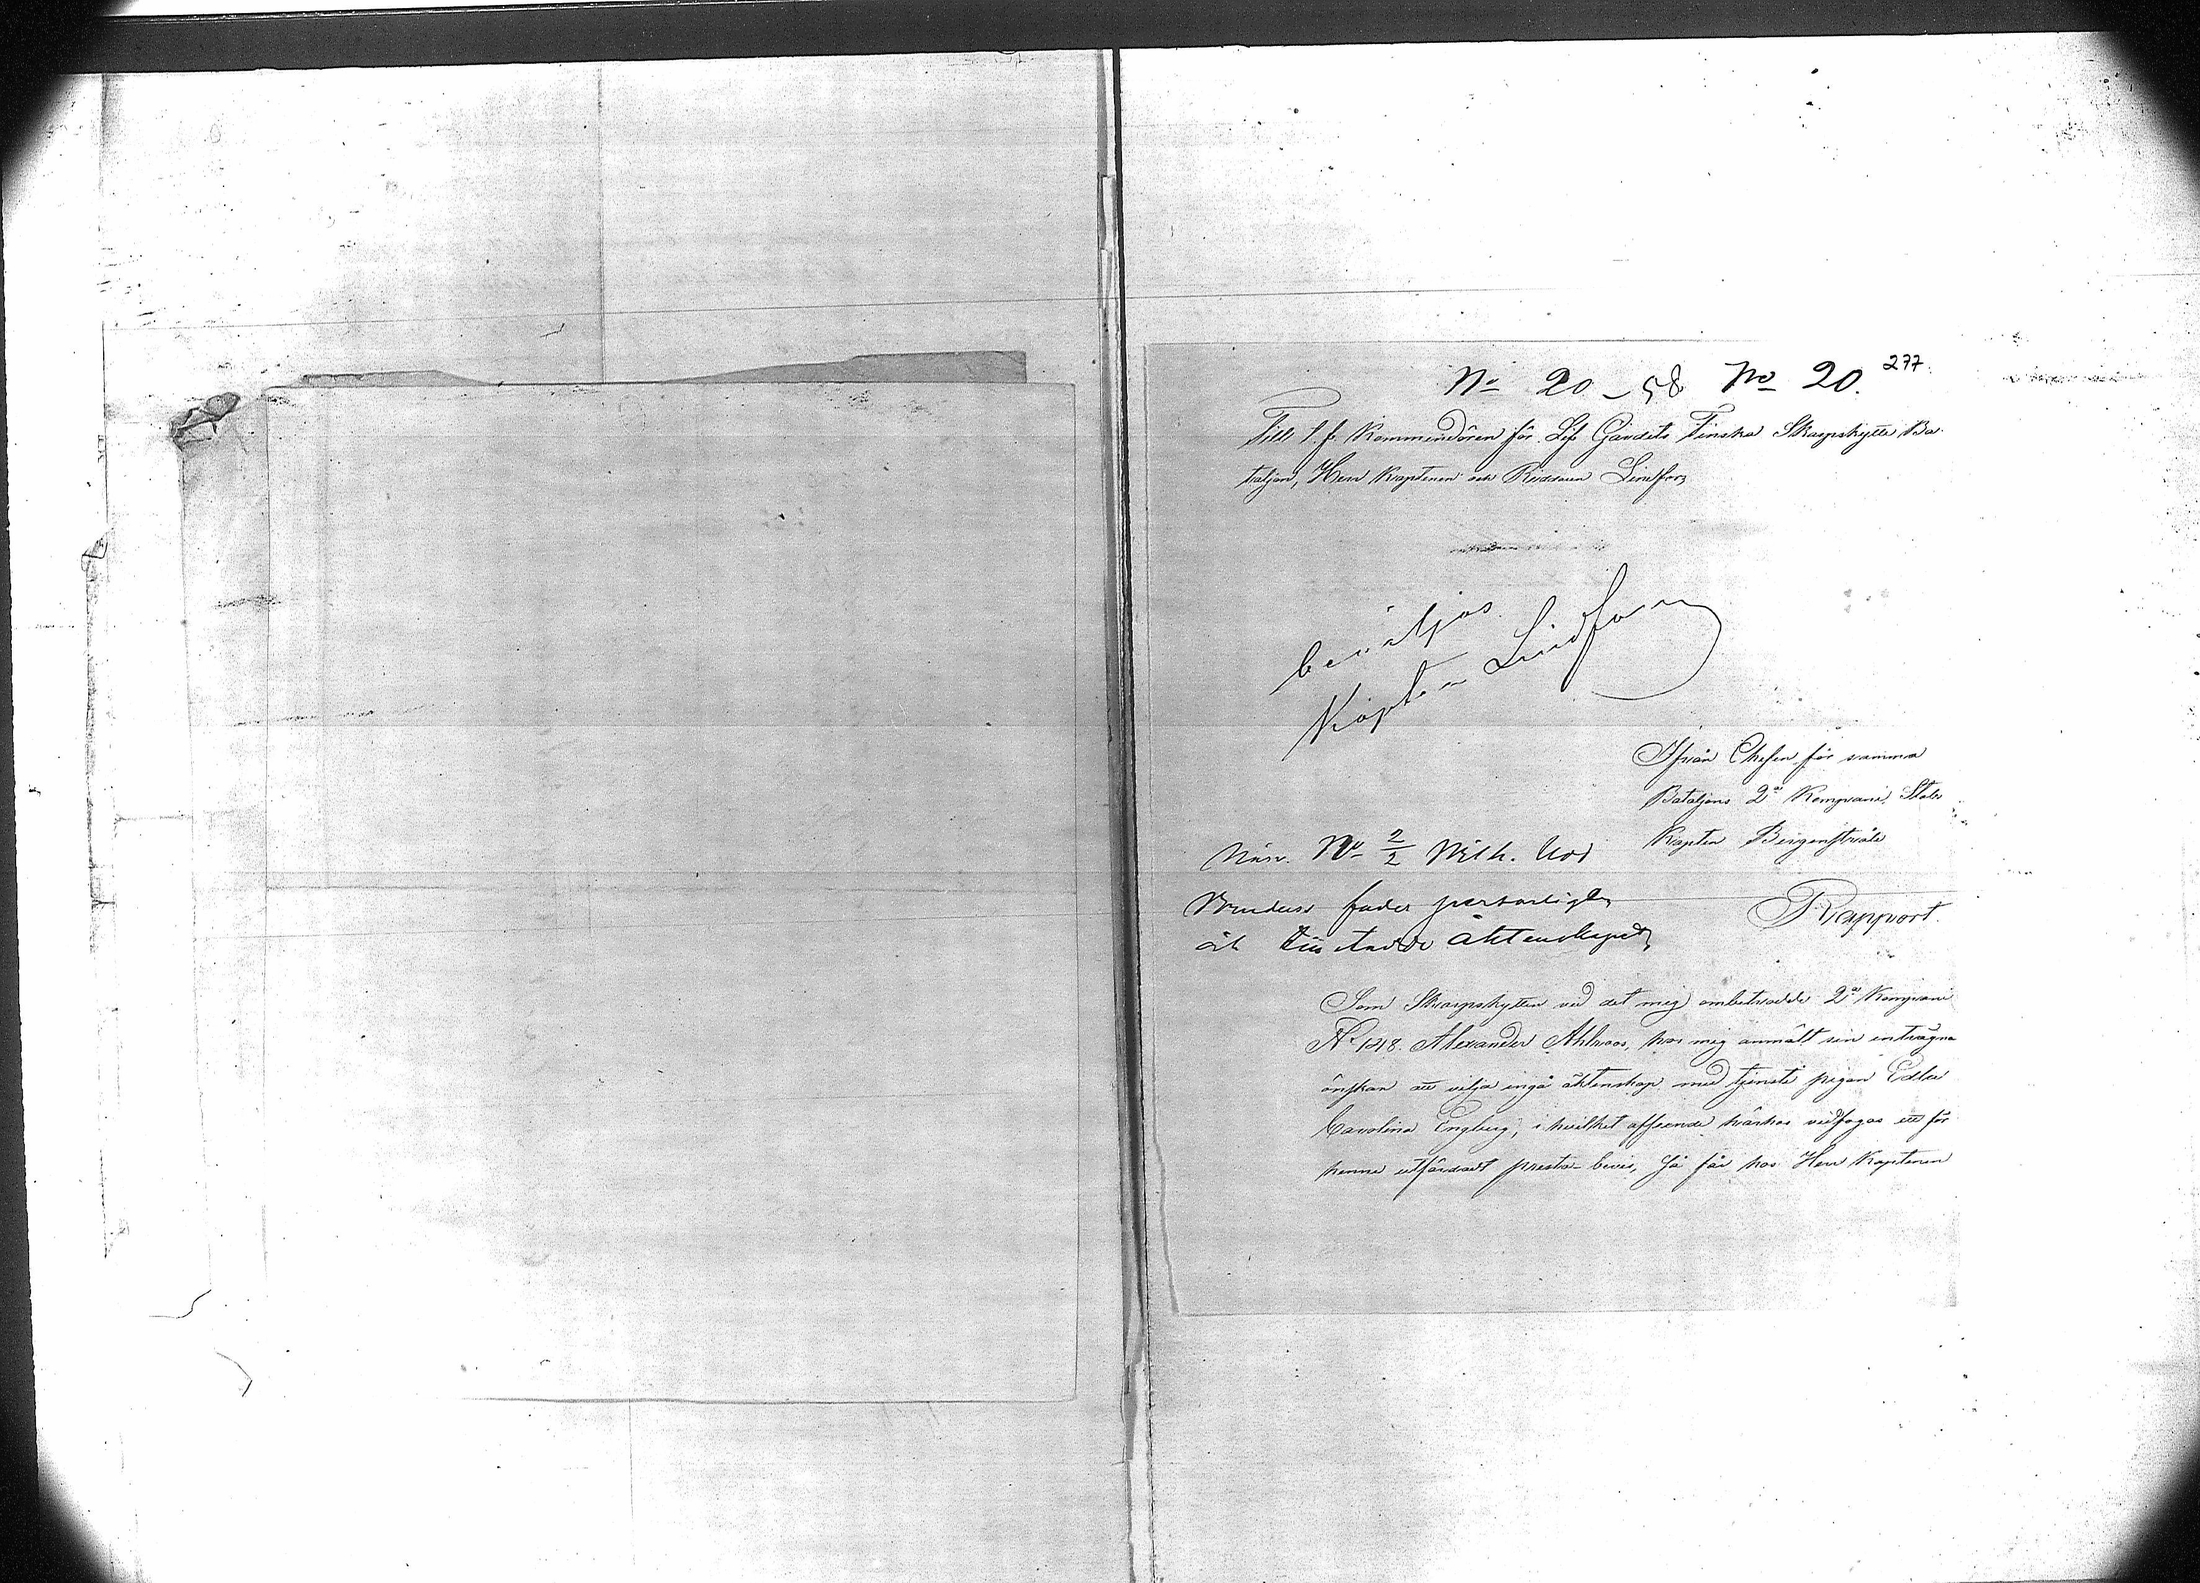 277
No 20 – 58 No 20.
Till t. f. Kommendören för Lif Gardets Finska Skarpskytte Ba-
taljon, Herr Kaptenen och Riddaren Lindfors
beviljas
Kapten Lindfors
Ifrån Chefen för samma
Bataljons 2a Kompani, Stabs
Kapten Bergenstråle
No 2/2 Wilh.
fader personligen
äktenskapet
Rapport.
Som Skarpskytten vid det mig anbetrodde 2a Kompani
No 128. Alexander Ahlroos, hos mig anmält sin enträgna
önskan att vilja ingå äktenskap med tjenste pigan Edla
Carolina Engberg, i hvilket afseende härhos vidfogas ett för
henne utfärdadt presta-bevis, så får hos Herr Kaptenen